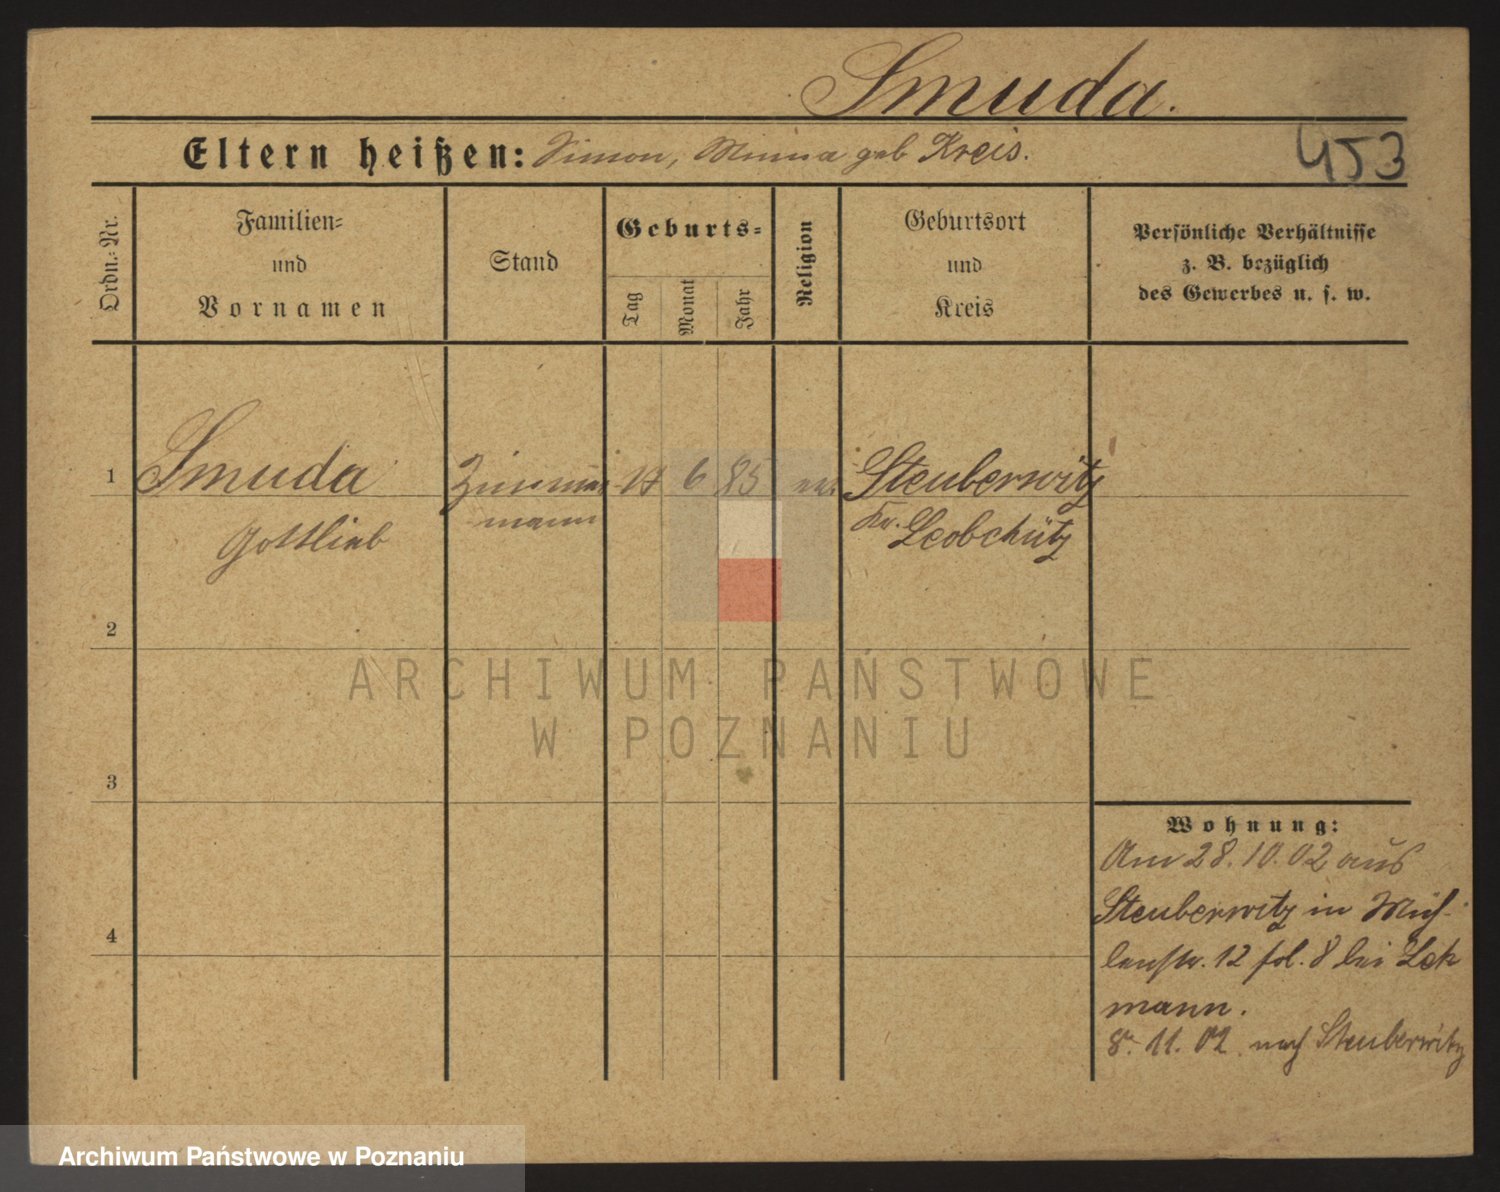 Smuda.
Eltern heißen: Simon, Minna geb Kreis.
453
Ordn.-Nr.
Familien=
und
Vornamen
Stand
Geburts=
Tag
Monat
Jahr
Religion
Geburtsort
und
Kreis
Persönliche Verhältnisse
z. B. bezüglich
des Gewerbes u. s. w.
1
Smuda
Gottlieb
Zimmer
mann
17
6
85
Steuberwitz
Kr. Leobchütz
2
3
4
Wohnung:
Am 28. 10. 02 aus
Steuberwitz in Müh-
lenstr. 12 fol. 8 bei Lek
mann.
8. 11. 02. nach Steuberwitz
ARCHIWUM PAŃSTWOWE
W POZNANIU
Archiwum Państwowe w Poznaniu